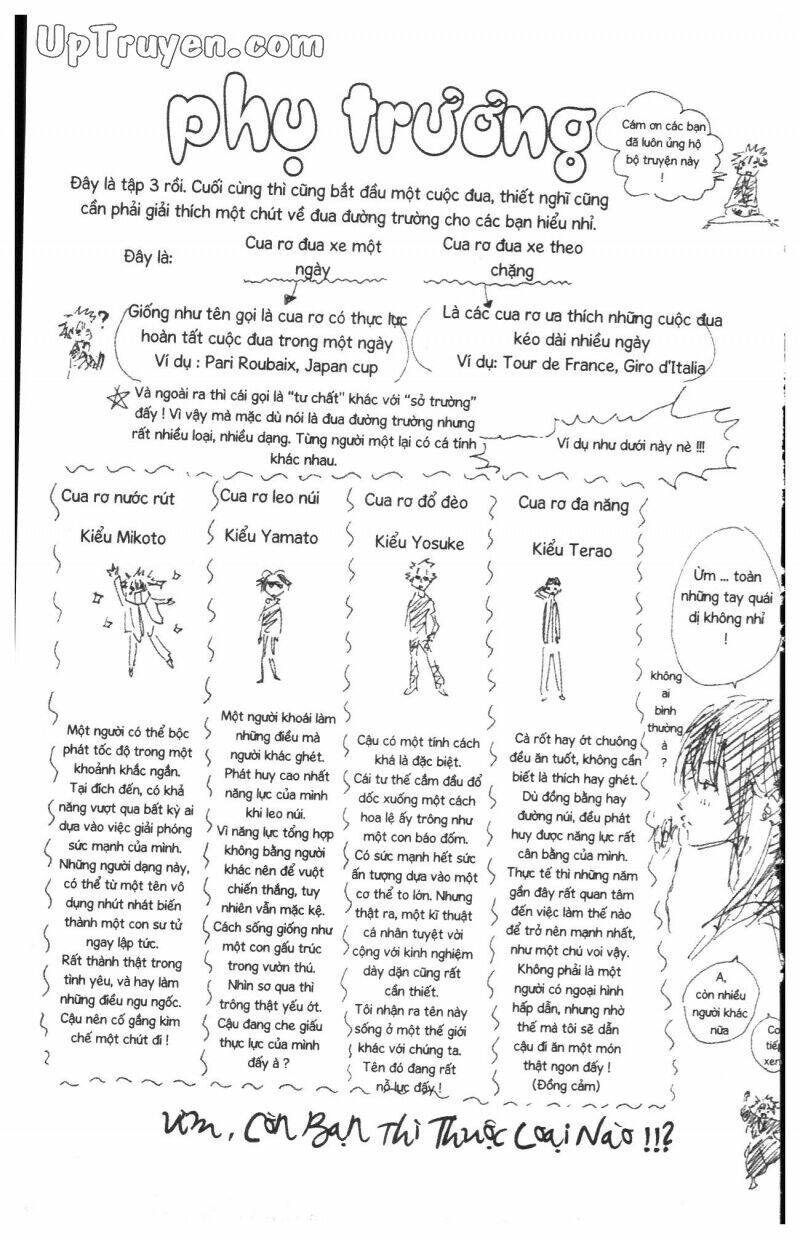 UpTruyen.com
phụ trương
Cám ơn các bạn
đã luôn ủng hộ
bộ truyện này
!
Đây là tập 3 rồi. Cuối cùng thì cũng bắt đầu một cuộc đua, thiết nghĩ cũng
cần phải giải thích một chút về đua đường trường cho các bạn hiểu nhỉ.
Đây là:
Cua rơ đua xe một
ngày
Cua rơ đua xe theo
chặng
Giống như tên gọi là cua rơ có thực lực
hoàn tất cuộc đua trong một ngày
Ví dụ : Pari Roubaix, Japan cup
Là các cua rơ ưa thích những cuộc đua
kéo dài nhiều ngày
Ví dụ: Tour de France, Giro d'Italia
Và ngoài ra thì cái gọi là "tư chất" khác với "sở trường"
đấy ! Vì vậy mà mặc dù nói là đua đường trường nhưng
rất nhiều loại, nhiều dạng. Từng người một lại có cá tính
khác nhau.
Ví dụ như dưới này nè !!!
Cua rơ nước rút
Kiểu Mikoto
Một người có thể bộc
phát tốc độ trong một
khoảnh khắc ngắn.
Tại đích đến, có khả
năng vượt qua bất kỳ ai
dựa vào việc giải phóng
sức mạnh của mình.
Những người dạng này,
có thể từ một tên vô
dụng nhút nhát biến
thành một con sư tử
ngay lập tức.
Rất thành thật trong
tình yêu, và hay làm
những điều ngu ngốc.
Cậu nên cố gắng kìm
chế một chút đi !
Cua rơ leo núi
Kiểu Yamato
Một người khoái làm
những điều mà
người khác ghét.
Phát huy cao nhất
năng lực của mình
khi leo núi.
Vì năng lực tổng hợp
không bằng người
khác nên để vuột
chiến thắng, tuy
nhiên vẫn mặc kệ.
Cách sống giống như
một con gấu trúc
trong vườn thú.
Nhìn sơ qua thì
trông thật yếu ớt.
Cậu đang che giấu
thực lực của mình
đấy à ?
Cua rơ đổ đèo
Kiểu Yosuke
Cậu có một tính cách
khá là đặc biệt.
Cái tư thế cắm đầu đổ
dốc xuống một cách
hoa lệ ấy trông như
một con báo đốm.
Có sức mạnh hết sức
ấn tượng dựa vào một
cơ thể to lớn. Nhưng
thật ra, một kĩ thuật
cá nhân tuyệt vời
cộng với kinh nghiệm
dày dặn cũng rất
cần thiết.
Tôi nhận ra tên này
sống ở một thế giới
khác với chúng ta.
Tên đó đang rất
nỗ lực đấy !
Cua rơ đa năng
Kiểu Terao
Cà rốt hay ớt chuông
đều ăn tuốt, không cần
biết là thích hay ghét.
Dù đồng bằng hay
đường núi, đều phát
huy được năng lực rất
cân bằng của mình.
Thực tế thì những năm
gần đây rất quan tâm
đến việc làm thế nào
để trở nên mạnh nhất,
như một chú voi vậy.
Không phải là một
người có ngoại hình
hấp dẫn, nhưng nhờ
thế mà tôi sẽ dẫn
cậu đi ăn một món
thật ngon đấy !
(Đồng cảm)
Ừm ... toàn
những tay quái
dị không nhỉ
!
không
ai
bình
thường
à
?
A,
còn nhiều
người khác
nữa
Ưm, Còn Bạn Thì Thuộc Loại Nào !!?